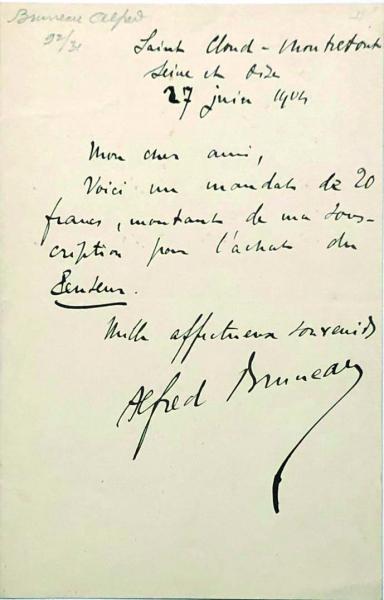 Bruneau Alfred
92/31
Saint Cloud - Montretout
Seine et Oise
27 juin 1904
Mon cher ami,
Voici un mandat de 20
francs, montant de ma sous-
cription pour l'achat du
Penseur.
Mille affectueux souvenirs
Alfred Bruneau